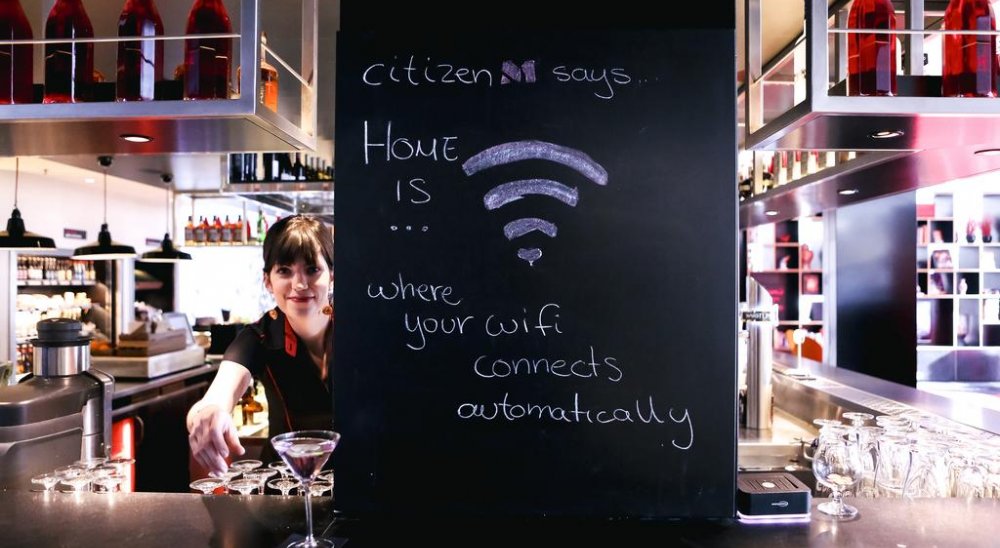 citizenM says...
HOME
IS
...
where
your wifi
connects
automatically